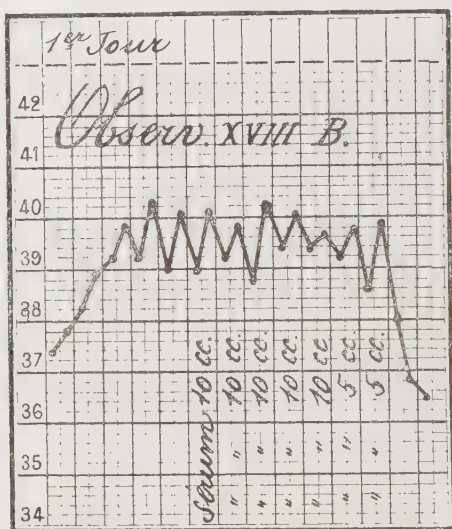 1er Jour
42
Observ. XVIII B.
41
40
39
38
37
36
35
34
Sérum 10 cc.
" 10 cc.
" 10 cc.
" 10 cc.
" 10 cc
" 5 cc.
" 5 cc.